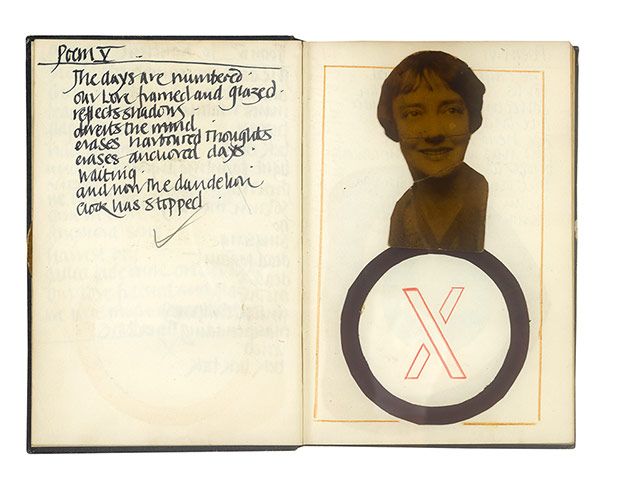 Poem V.
The days are numbered.
our love framed and glazed.
reflects shadows.
the mind
erases harboured thoughts
erases anchored days.
waiting.
and now the dandelion
clock has stopped.
X